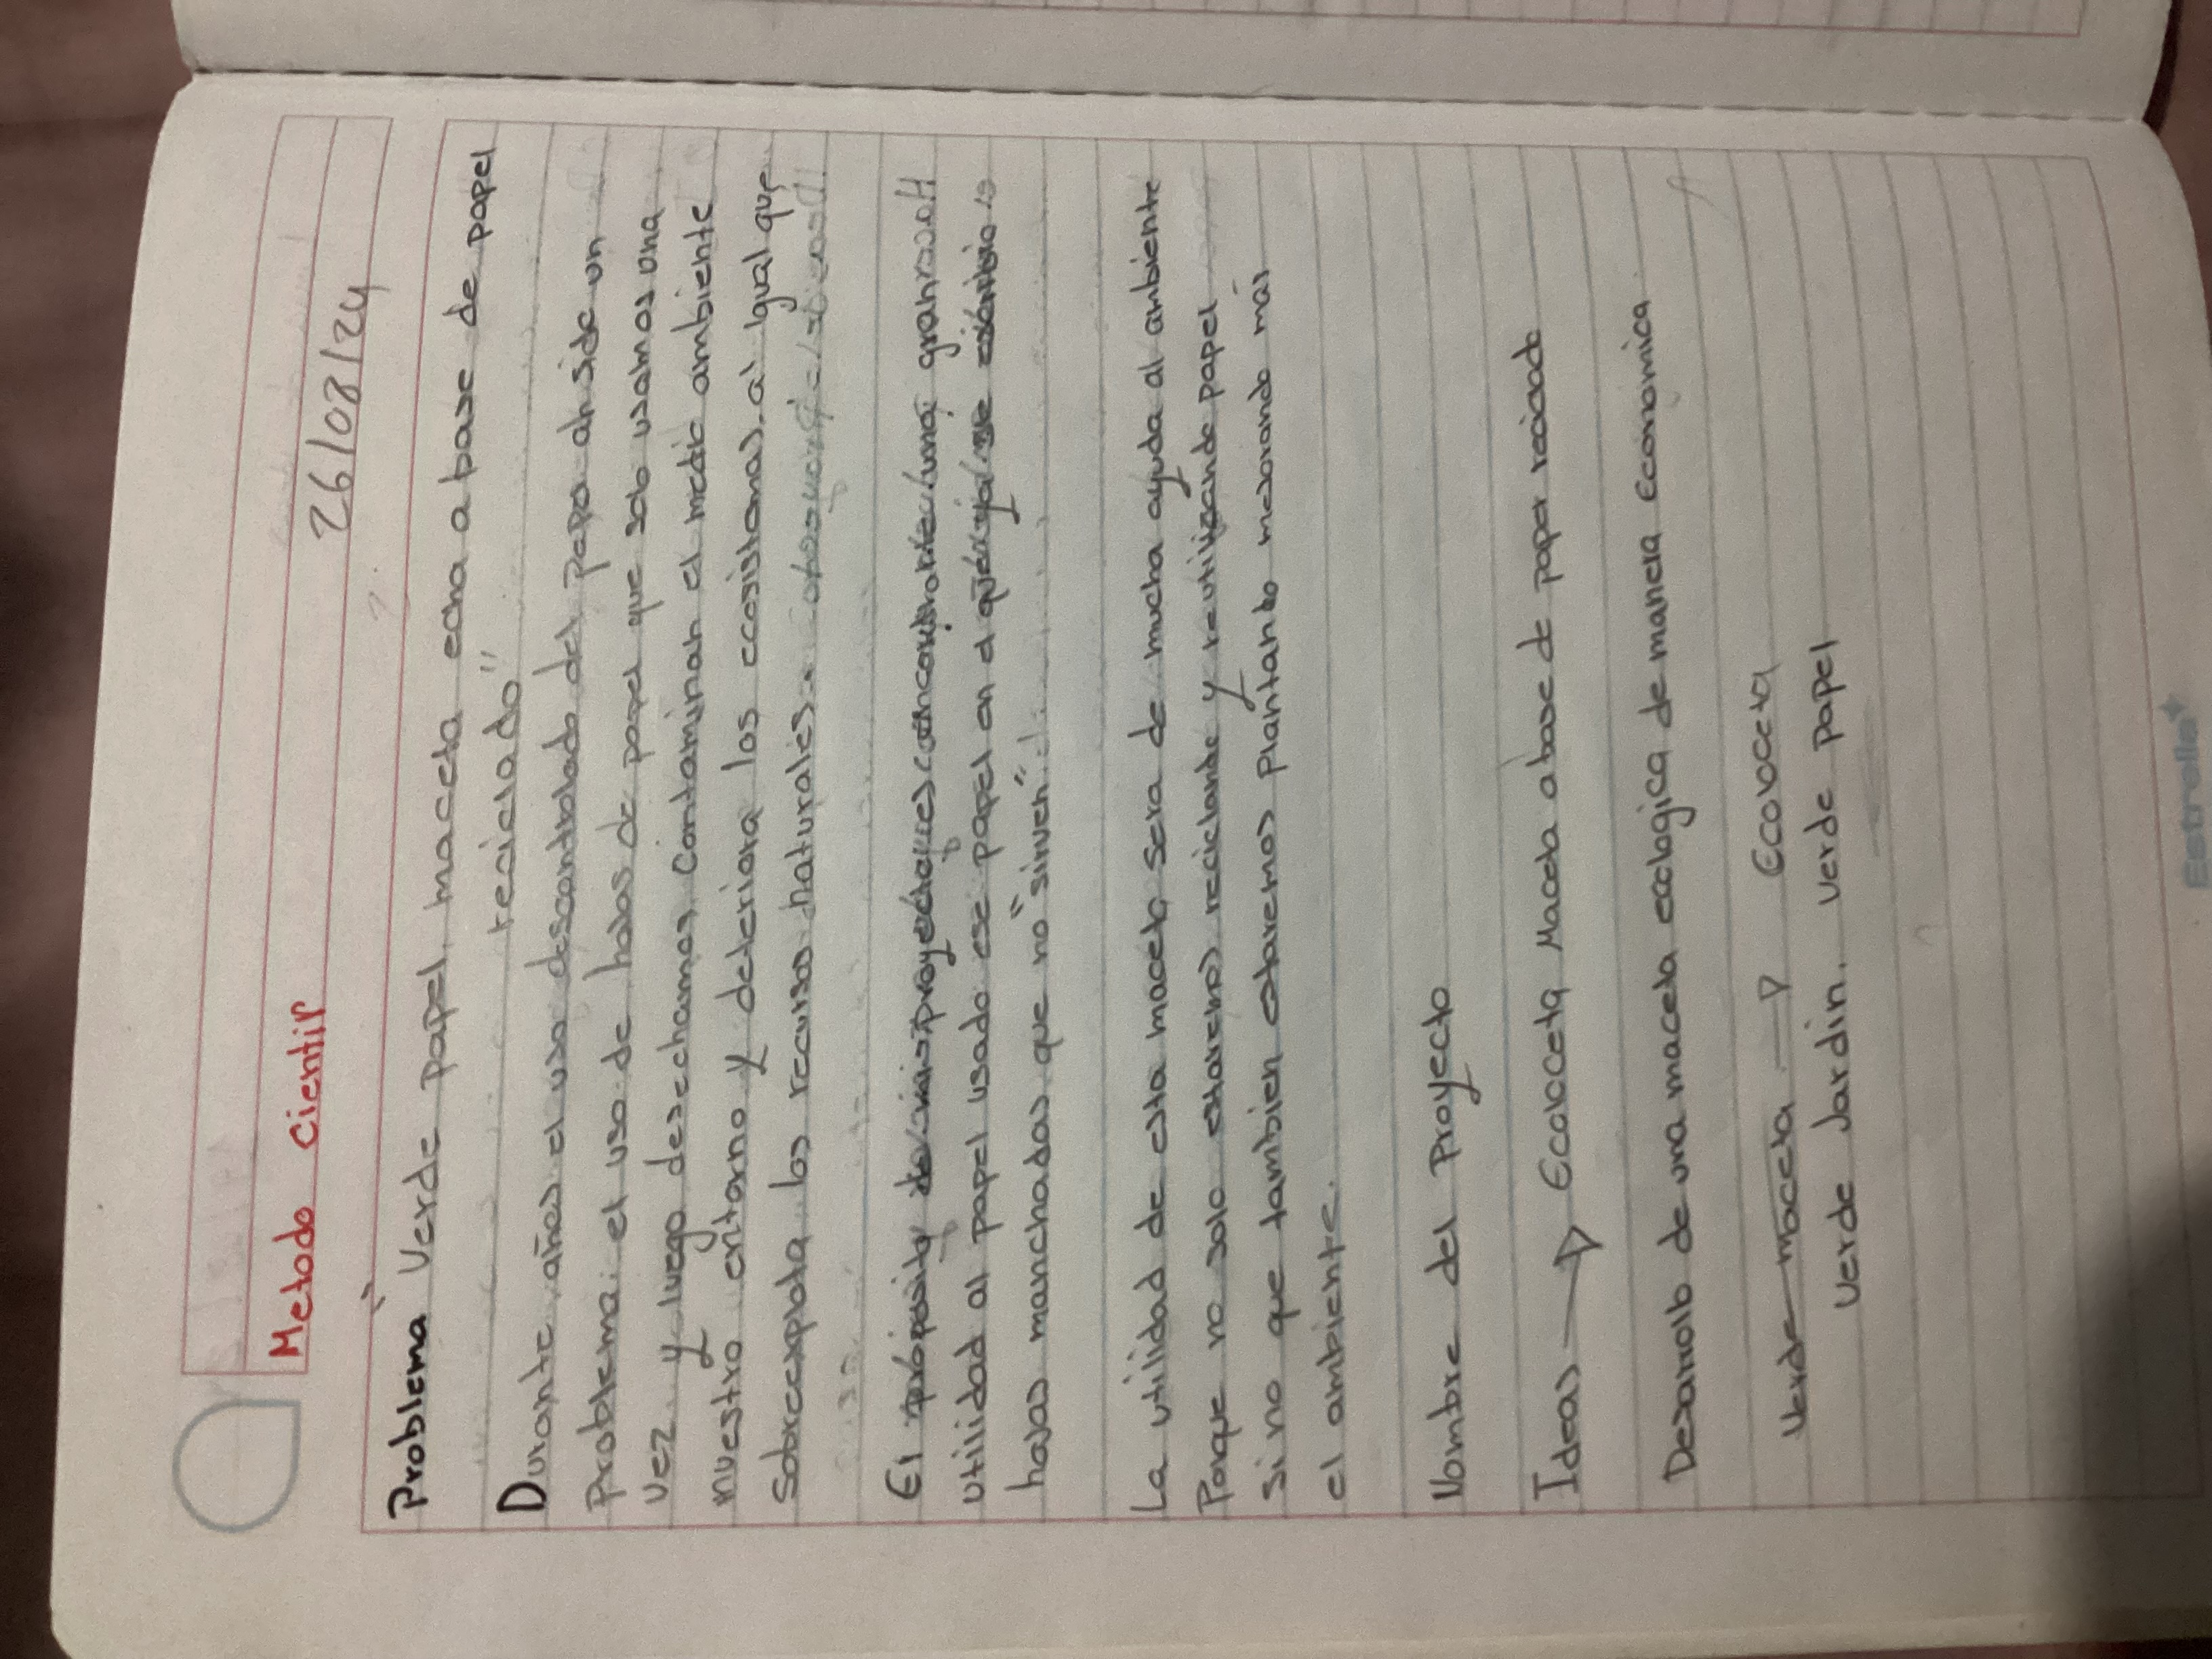 Metodo Cientif
26/08/24
Problema "Verde papel, maceta echa a base de papel
reciclado"
Durante años el uso descontrolado del papel ah sido un
Problema: el uso de hojas de papel que solo usamos una
vez y luego desechamos, Contaminan el medio ambiente
nuestro entorno y deteriora los ecosistemas, al igual que
sobreexplota los recursos naturales.
El proposito de mi proyecto es encontrarle una gran
utilidad al papel usado ese papel en el que ya no
hojas manchadas que no "sirven"
La utilidad de esta maceta sera de mucha ayuda al ambiente
Porque no solo estaremos reciclando y reutilizando papel
Si no que tambien estaremos Plantando mejorando más
el ambiente.
Nombre del Proyecto
Ideas Ecolocceta Maceta a base de papel reciado
Desarrollo de una maceta ecologica de manera Economica
Verde maceta Ecolocceta
Verde Jardin. verde papel
Estrella